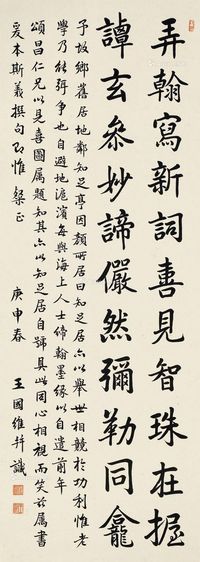 弄翰寫新詞善見智珠在握
譚玄參妙諦儼然彌勒同龕
予故鄉舊居地鄰知足亭因顏所居曰知足居亦以舉世相競於功利惟老
學乃能弭爭也自避地滬濱每與海上人士締翰墨緣以自遣前年
頌昌仁兄以是喜圖属題知其亦以知足居自號具此同心相視而笑茲属書
爰本斯義撰句即惟 粲正
庚申春 王國維并識